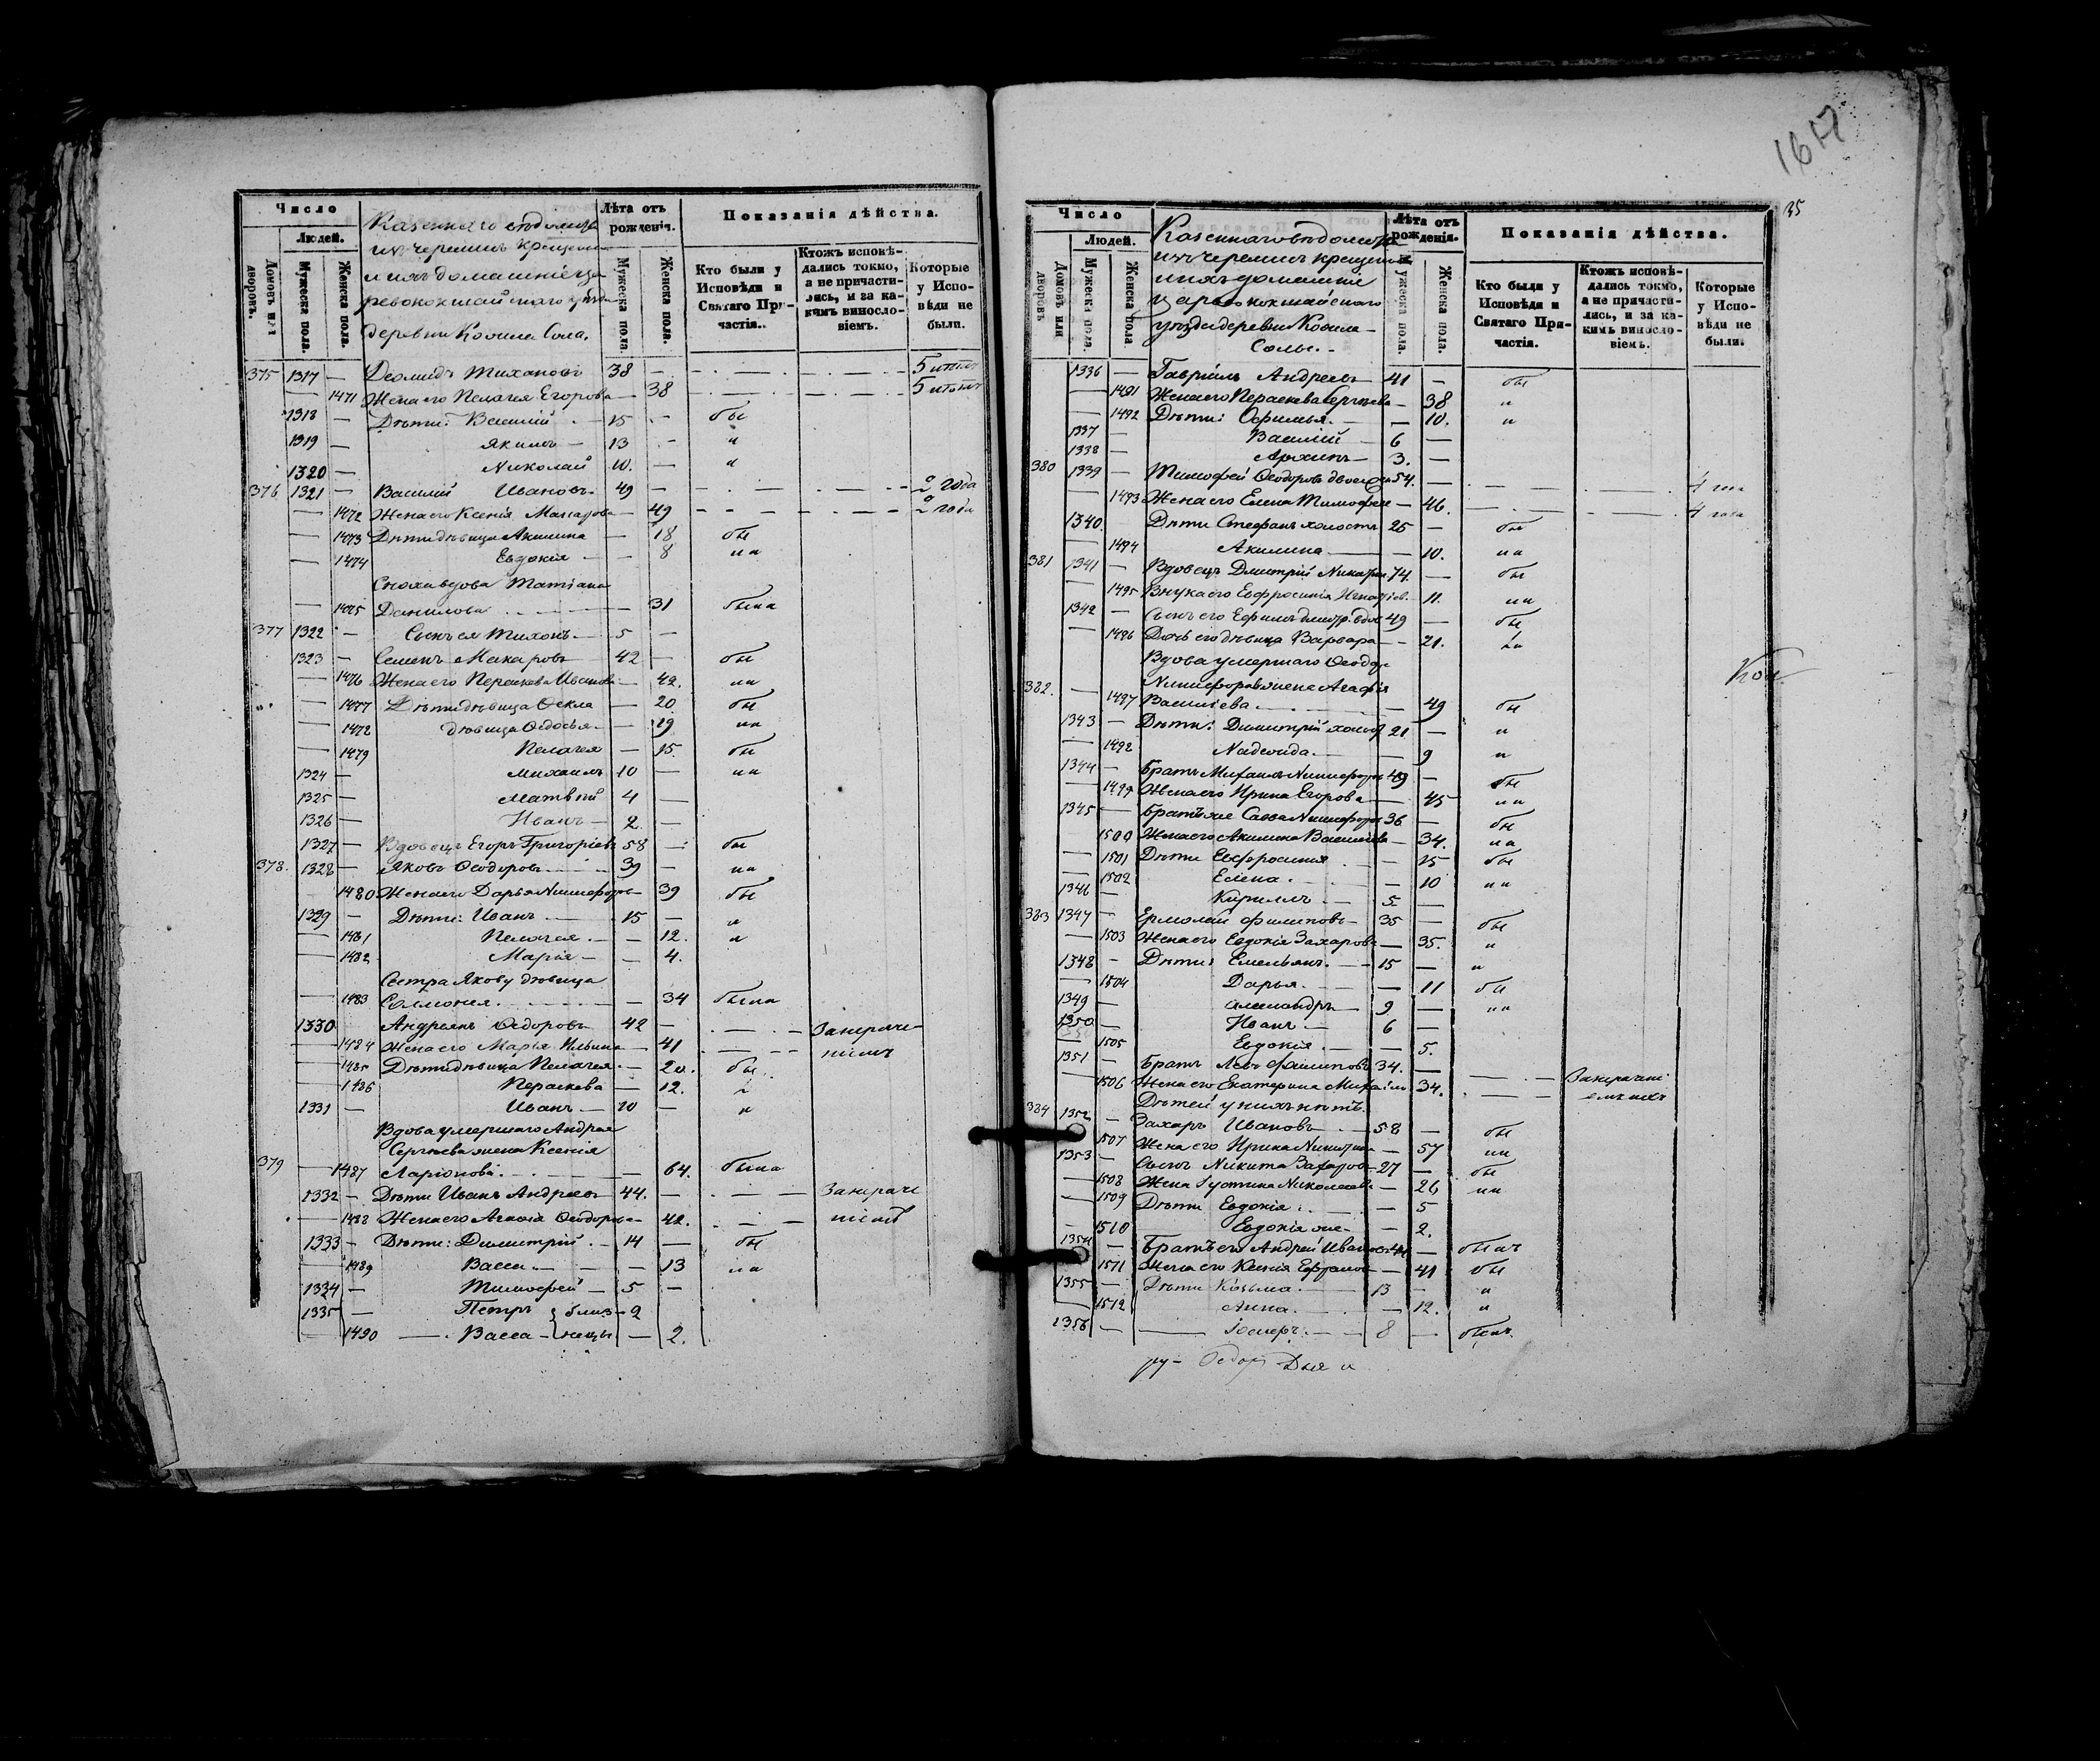 1617
35
Число
Людей.
Домовъ или дворовъ.
Мужеска пола.
Женска пола.
Казеннаго вѣдомства
изъ черемисъ крещены
и ихъ домашніе Ца
ревококшайскаго уѣзда
деревни Кошла Сола.
Лѣта отъ рожденія.
Мужеска пола.
Женска пола.
Показанія дѣйства.
Кто были у Исповѣди и Святаго Причастія.
Ктожъ исповѣдались токмо, а не причастились, и за какимъ винословіемъ.
Которые у Исповѣди не были.
375 1317 — Диомидъ Тихановъ 38 — 5 лѣтъ
— 1471 Жена его Пелагея Егорова — 38 5 лѣтъ
1318 — Дѣти: Василій — 15 — бы
1319 — Якимъ — 13 — и
1320 — Николай 10. — и
376 1321 — Василій Ивановъ 49 — 2 года
— 1472 Жена его Ксенія Макарова — 49 2 года
— 1473 Дѣти дѣвица Акилина — 18 бы
— 1474 Евдокія — 8 ли
Сноха вдова Татіана
— 1475 Данилова — 31 была
377 1322 — Сынъ ея Тихонъ — 5 —
1323 — Семенъ Макаровъ 42 — бы
— 1476 Жена его Параскева Иванова — 42. ли
— 1477 Дѣти дѣвица Ѳекла — 20 бы
— 1478 дѣвица Ѳедосья — 19 ли
— 1479 Пелагея — 15. бы
1324 — Михаилъ 10 — ли
1325 — Матвѣй 4 —
1326 — Иванъ — 2 —
1327 — Вдовецъ Егоръ Григорьевъ 58 — бы
378. 1328 — Яковъ Ѳеодоровъ 39 — ли
1480 Жена его Дарья Никифорова — 39 бы
1329 — Дѣти: Иванъ 15 — и
— 1481 Пелагея — 12. и
— 1482 Марія — 4.
Сестра Якову дѣвица
— 1483 Соломонея — 34 была
1330 Андреянъ Ѳедоровъ 42 — Закераче
— 1484 Жена его Марья Ильина — 41 ніемъ
— 1485 Дѣти дѣвица Пелагея — 20. бы
— 1486 Параскева — 12. и
1331 — Иванъ — 10 — и
Вдова умершаго Андрея
Сергѣева жена Ксенія
379 — 1487 Ларіонова — 64. была
1332 — Дѣти Иванъ Андреевъ 44. — Закераче
— 1488 Жена его Агаѳія Ѳеодорова — 42. ніемъ
1333 — Дѣти: Димитрій — 14 — бы
— 1489 Васса — 13 ли
1334 — Тимоѳей — 5 —
1335 — Петръ близ — 2
— 1490 — Васса — нецы — 2.
Число
Людей.
Домовъ или дворовъ
Мужеска пола.
Женска пола
Казеннаго вѣдомства
изъ черемисъ крещены
и ихъ домашніе
Царевококшайскаго
уѣзда деревни Кошла
Солы.
Лѣта отъ рожденія.
Мужеска пола.
Женска пола.
Показанія дѣйства.
Кто были у Исповѣди и Святаго Причастія.
Ктожъ исповѣдались токмо, а не причастились, и за какимъ винословіемъ.
Которые у Исповѣди не были.
1336 — Гавріилъ Андреевъ 41 — бы
— 1491 Жена его Параскева Сергѣева — 38 и
— 1492 Дѣти: Ѳфимья — 10. и
1337 — Василій — 6 —
1338 — Архипъ — 3. —
380 1339 — Тимофей Ѳеодоровъ 54. — 4 года
— 1493 Жена его Елена Тимофеева — 46. 4 года
1340. Дѣти Стефанъ холостъ 25 — бы
— 1494 Акилина — 10. ли
381 1341 — Вдовецъ Дмитрій 74. — бы
— 1495 Внука его Евфросинія — 11. ли
1342 — Сынъ его Ефимъ 49 — бы
— 1496 Дочь его дѣвица Варвара — 21. ли
Вдова умершаго Ѳеодора
Никифорова жена Агафія
382. — 1497 Васильева — 49 бы
1343 — Дѣти: Димитрій холост 21 — и
— 1498 Надежда — 9 и
1344 — Братъ Михаилъ Никифоровъ 49 — бы
— 1499 Жена его Ирина Егорова — 45 ли
1345 — Братъ же Савва Никифоровъ 36 — бы
1500 Жена его Акилина Васильева — 34. ли
— 1501 Дѣти Евфросинія — 15 бы
— 1502 Елена — 10 ли
1346 — Кириллъ — 5 —
383 1347 — Ермолай Филиповъ 35 — бы
— 1503 Жена его Евдокія Захарова — 35. и
1348 — Дѣти: Емельянъ — 15 — и
— 1504 Дарья — 11 бы
1349 — Александръ 9 — ли
1350 — Иванъ — 6 —
— 1505 Евдокія — 5.
1351 — Братъ Левъ Филиповъ 34. — Закерачні
— 1506 Жена его Екатерина 34.
Дѣтей у нихъ нѣтъ.
384 1352 — Захаръ Ивановъ 58 — бы
— 1507 Жена его Ирина Никитина — 57 ли
1353 — Сынъ Никита Захаровъ 27 — бы
— 1508 Жена Устинья Николаева — 26 ли
— 1509 Дѣти Евдокія — 5
— 1510 Евдокія же — 2.
1354 — Братъ его Андрей Ивановъ 44 — былъ
— 1511 Жена его Ксенія — 41 бы
1355 — Дѣти Козьма — 13 — и
— 1512 Анна — 12. и
1356 — 8 — былъ.
Кош